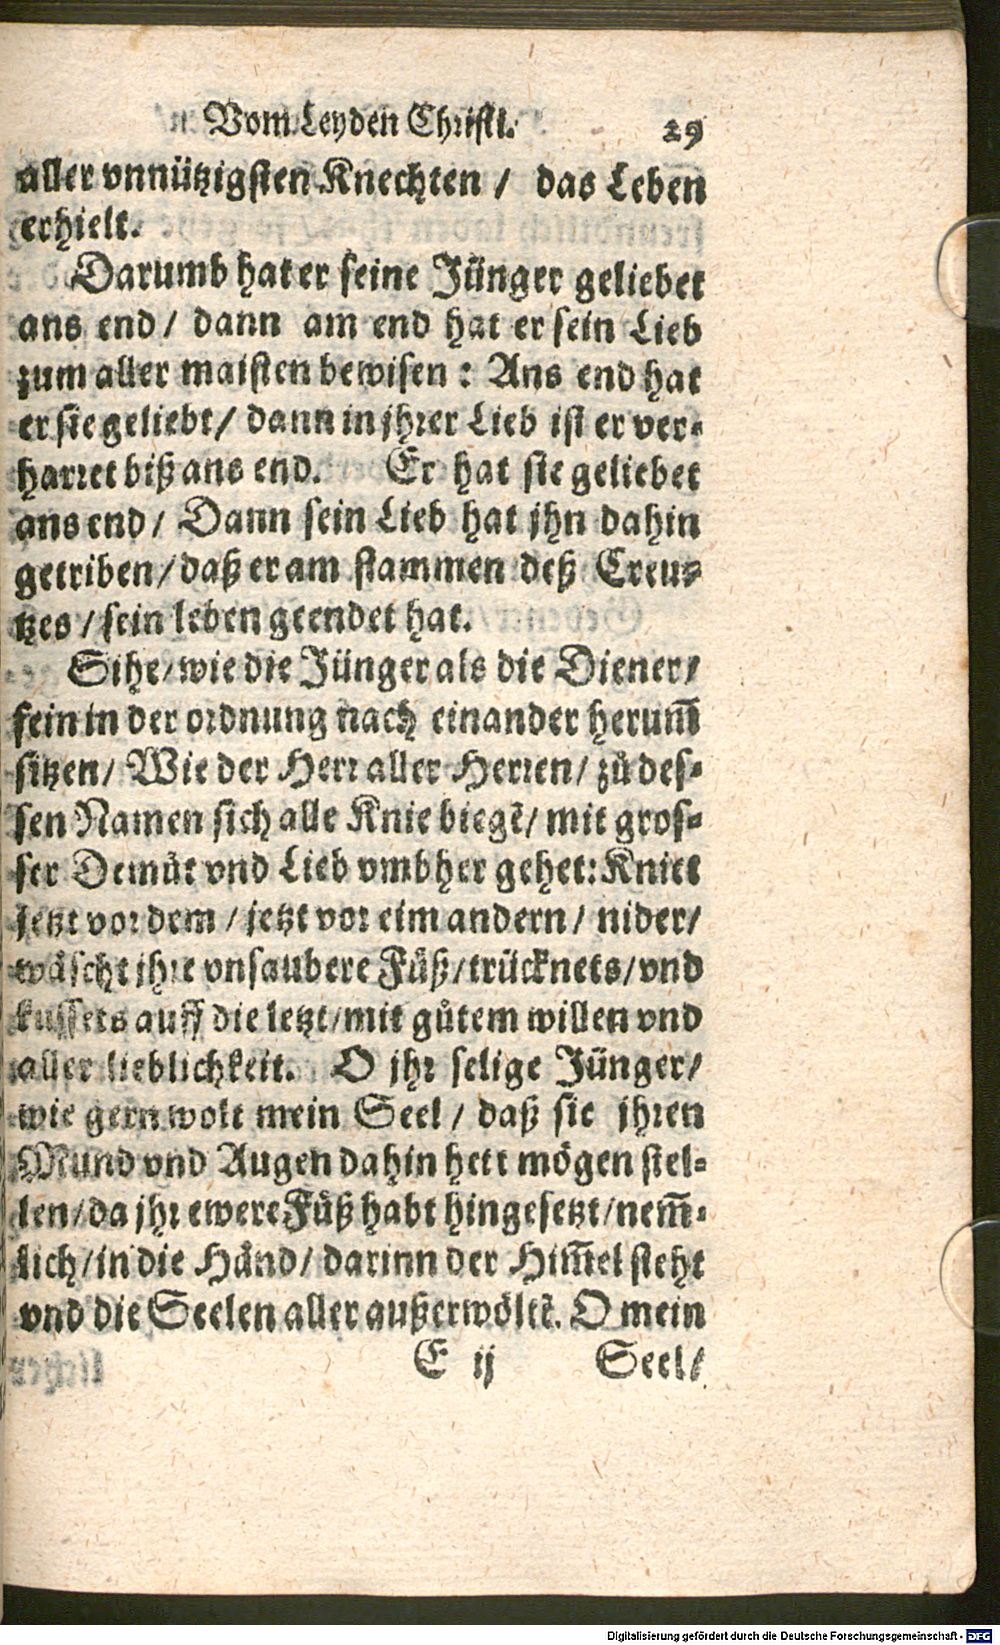 Vom Leyden Christi. 29
aller vnnützigsten Knechten / das Leben
erhielt.
Darumb hat er seine Jünger geliebet
ans end / dann am end hat er sein Lieb
zum aller maisten bewisen : Ans end hat
er sie geliebt / dann in jhrer Lieb ist er ver-
harret biß ans end. Er hat sie geliebet
ans end / Dann sein Lieb hat jhn dahin
getriben / daß er am stammen deß Creu-
tzes / sein leben geendet hat.
Sihe / wie die Jünger als die Diener /
fein in der ordnung nach einander herum̃
sitzen / Wie der Herr aller Herren / zů des-
sen Namen sich alle Knie biegẽ / mit gros-
ser Demůt vnd Lieb vmbher gehet: Kniet
jetzt vor dem / jetzt vor eim andern / nider /
wäscht jhre vnsaubere Fůß / trücknets / vnd
kussets auff die letzt / mit gůtem willen vnd
aller lieblichkeit. O jhr selige Jünger /
wie gern wolt mein Seel / daß sie jhren
Mund vnd Augen dahin hett mögen stel-
len / da jhr ewere Fůß habt hingesetzt / nem̃-
lich / in die Händ / darinn der Him̃el steht
vnd die Seelen aller außerwöltẽ. O mein
E ij Seel /
Digitalisierung gefördert durch die Deutsche Forschungsgemeinschaft - DFG